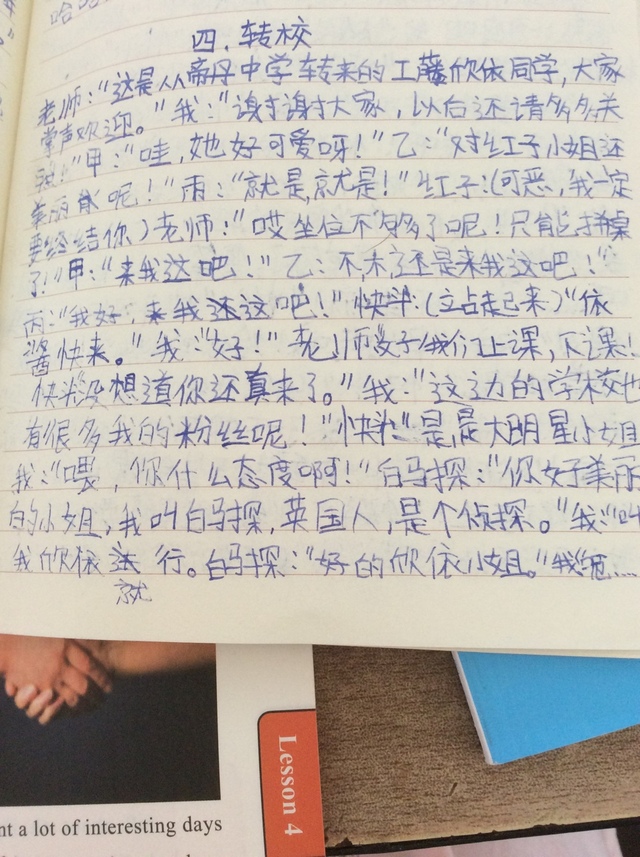 哈哈
四.转校
老师:“这是从帝丹中学转来的工藤欣依同学,大家
掌声欢迎。”我:“谢谢大家,以后还请多多关
照!”甲:“哇,她好可爱呀!”乙:“对红子小姐还
美丽 呢!”丙:“就是,就是!”红子:(可恶,我一定
要 结你)老师:“哎坐位不够了呢!只能 拼桌
了!”甲:“来我这吧!”乙:不,不,还是来我这吧!”
丙:“我好,来我这吧!”快斗:(立站起来)“依
酱快来。”我:“好!”老师 我们上课,下课!
快斗没想道你还真来了。”我:“这边的学校也
有很多我的粉丝呢!”快斗:“是,是大明星小姐
我:“喂,你什么态度啊!”白马探:“你好美丽
的小姐,我叫白马探,英国人,是个侦探。”我:“叫
我欣依就行。白马探:“好的欣依小姐。”我:“呃……
Lesson 4
nt a lot of interesting days